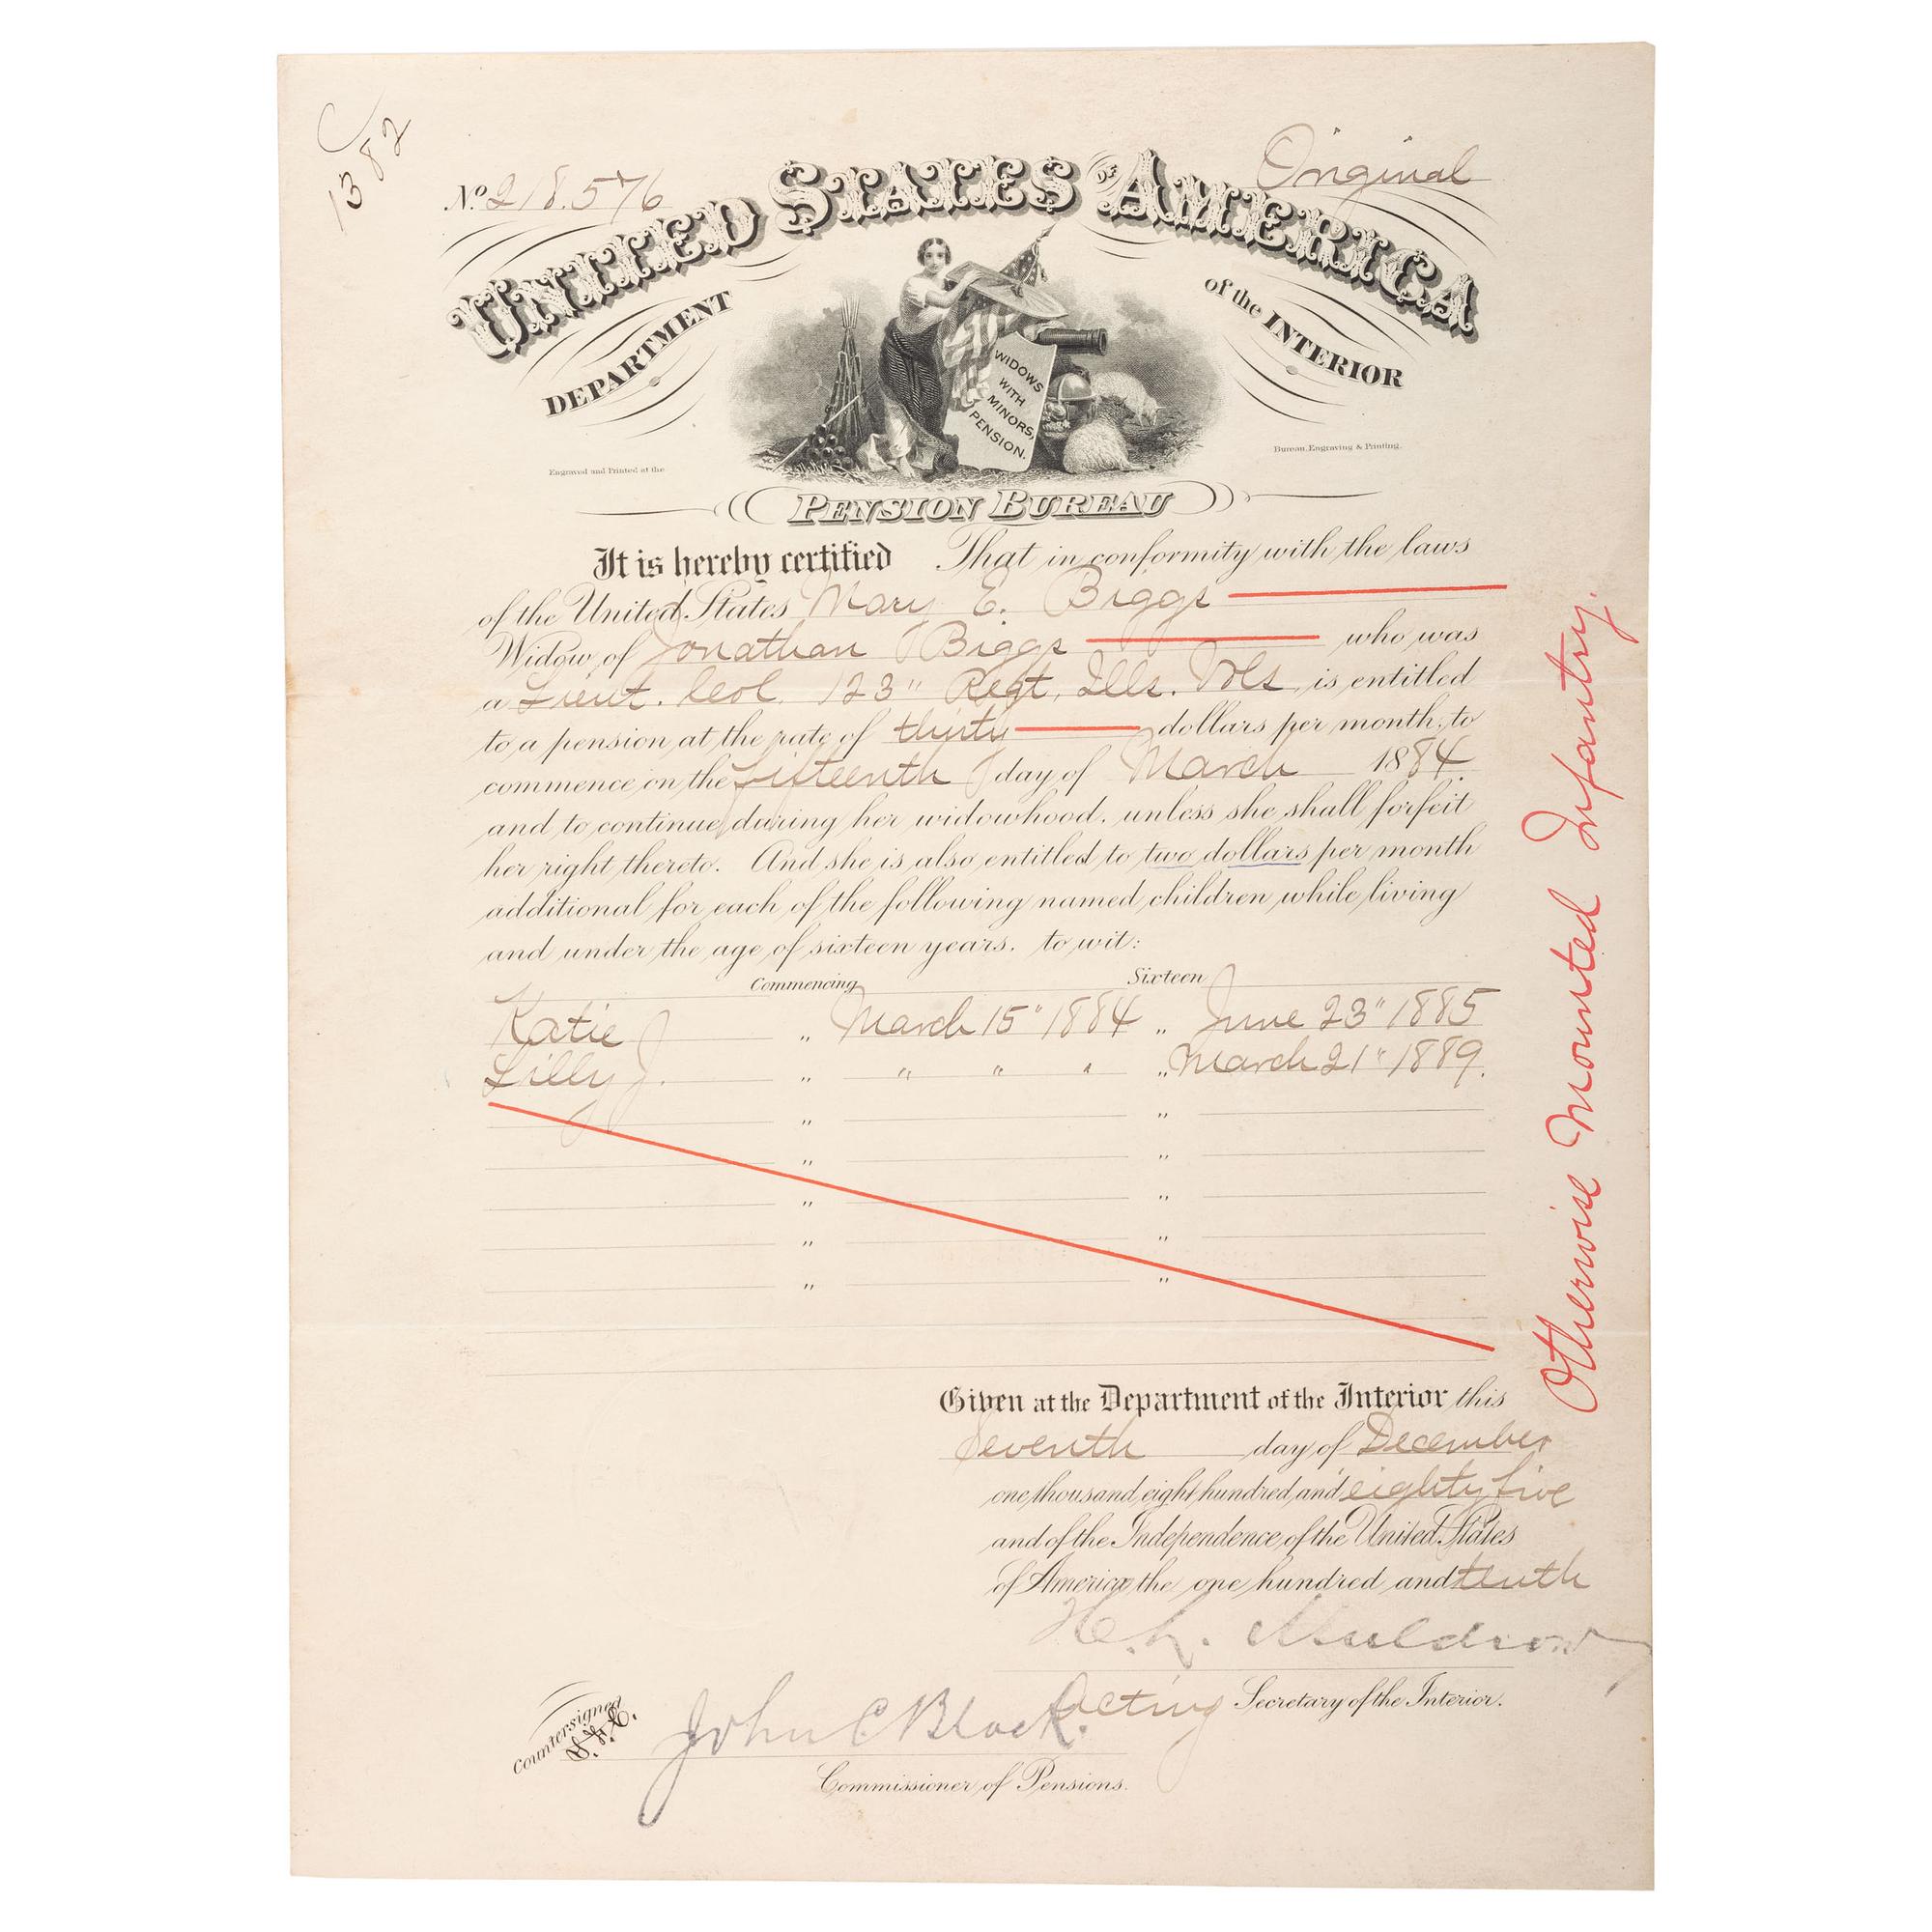 C
1382
No 218.576
Original
UNITED STATES OF AMERICA
DEPARTMENT of the INTERIOR
WIDOWS
WITH
MINORS,
PENSION.
Engraved and Printed at the
Bureau, Engraving & Printing.
PENSION BUREAU
It is hereby certified That in conformity with the laws
of the United States Mary E. Biggs
Widow of Jonathan Biggs who was
a Lieut. Col. 123" Regt. Ills. Vols is entitled
to a pension at the rate of thirty dollars per month, to
commence on the fifteenth day of March 1884.
and to continue during her widowhood, unless she shall forfeit
her right thereto. And she is also entitled to two dollars per month
additional for each of the following named children while living
and under the age of sixteen years, to wit:
Commencing Sixteen
Katie " March 15" 1884 " June 23" 1885
Lilly J. " " " " " March 21" 1889.
" "
" "
" "
" "
" "
Otherwise Mounted Infantry.
Given at the Department of the Interior this
Seventh day of December
one thousand eight hundred and eighty five
and of the Independence of the United States
of America the one hundred and tenth
H. L. Muldrow
Acting Secretary of the Interior.
Countersigned
John C Black.
Commissioner of Pensions.